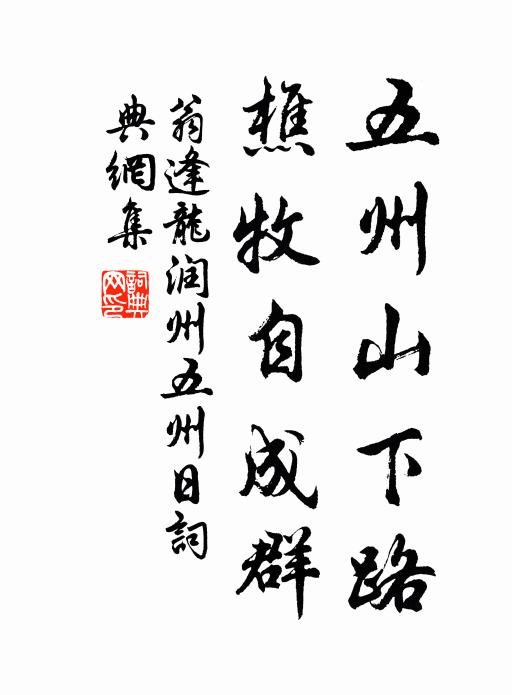 五州山下路
樵牧自成群
翁逢龍润州五州日詞
典網集
詞典
网印